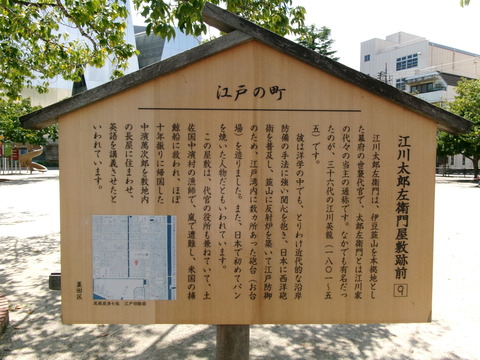 江戸の町
江川太郎左衛門屋敷跡前 9
江川太郎左衛門は、伊豆韮山を本拠地とし
た幕府の世襲代官で、太郎左衛門とは江川家
の代々の当主の通称です。なかでも有名だっ
たのが、三十六代の江川英龍(一八〇一〜五
五)です。
彼は洋学の中でも、とりわけ近代的な沿岸
防備の手法に強い関心を抱き、日本に西洋砲
術を普及し、韮山に反射炉を築いて江戸防御
のため、江戸湾内に数ヵ所あった砲台(お台
場)を造りました。また、日本で初めてパン
を焼いた人物だともいわれています。
この屋敷は、代官の役所も兼ねていて、土
佐国中濱村の漁師で、嵐で遭難し、米国の捕
鯨船に救われ、ほぼ
十年振りに帰国した
中濱萬次郎を敷地内
の長屋に住まわせ、
英語を講義させたと
いわれています。
墨田区